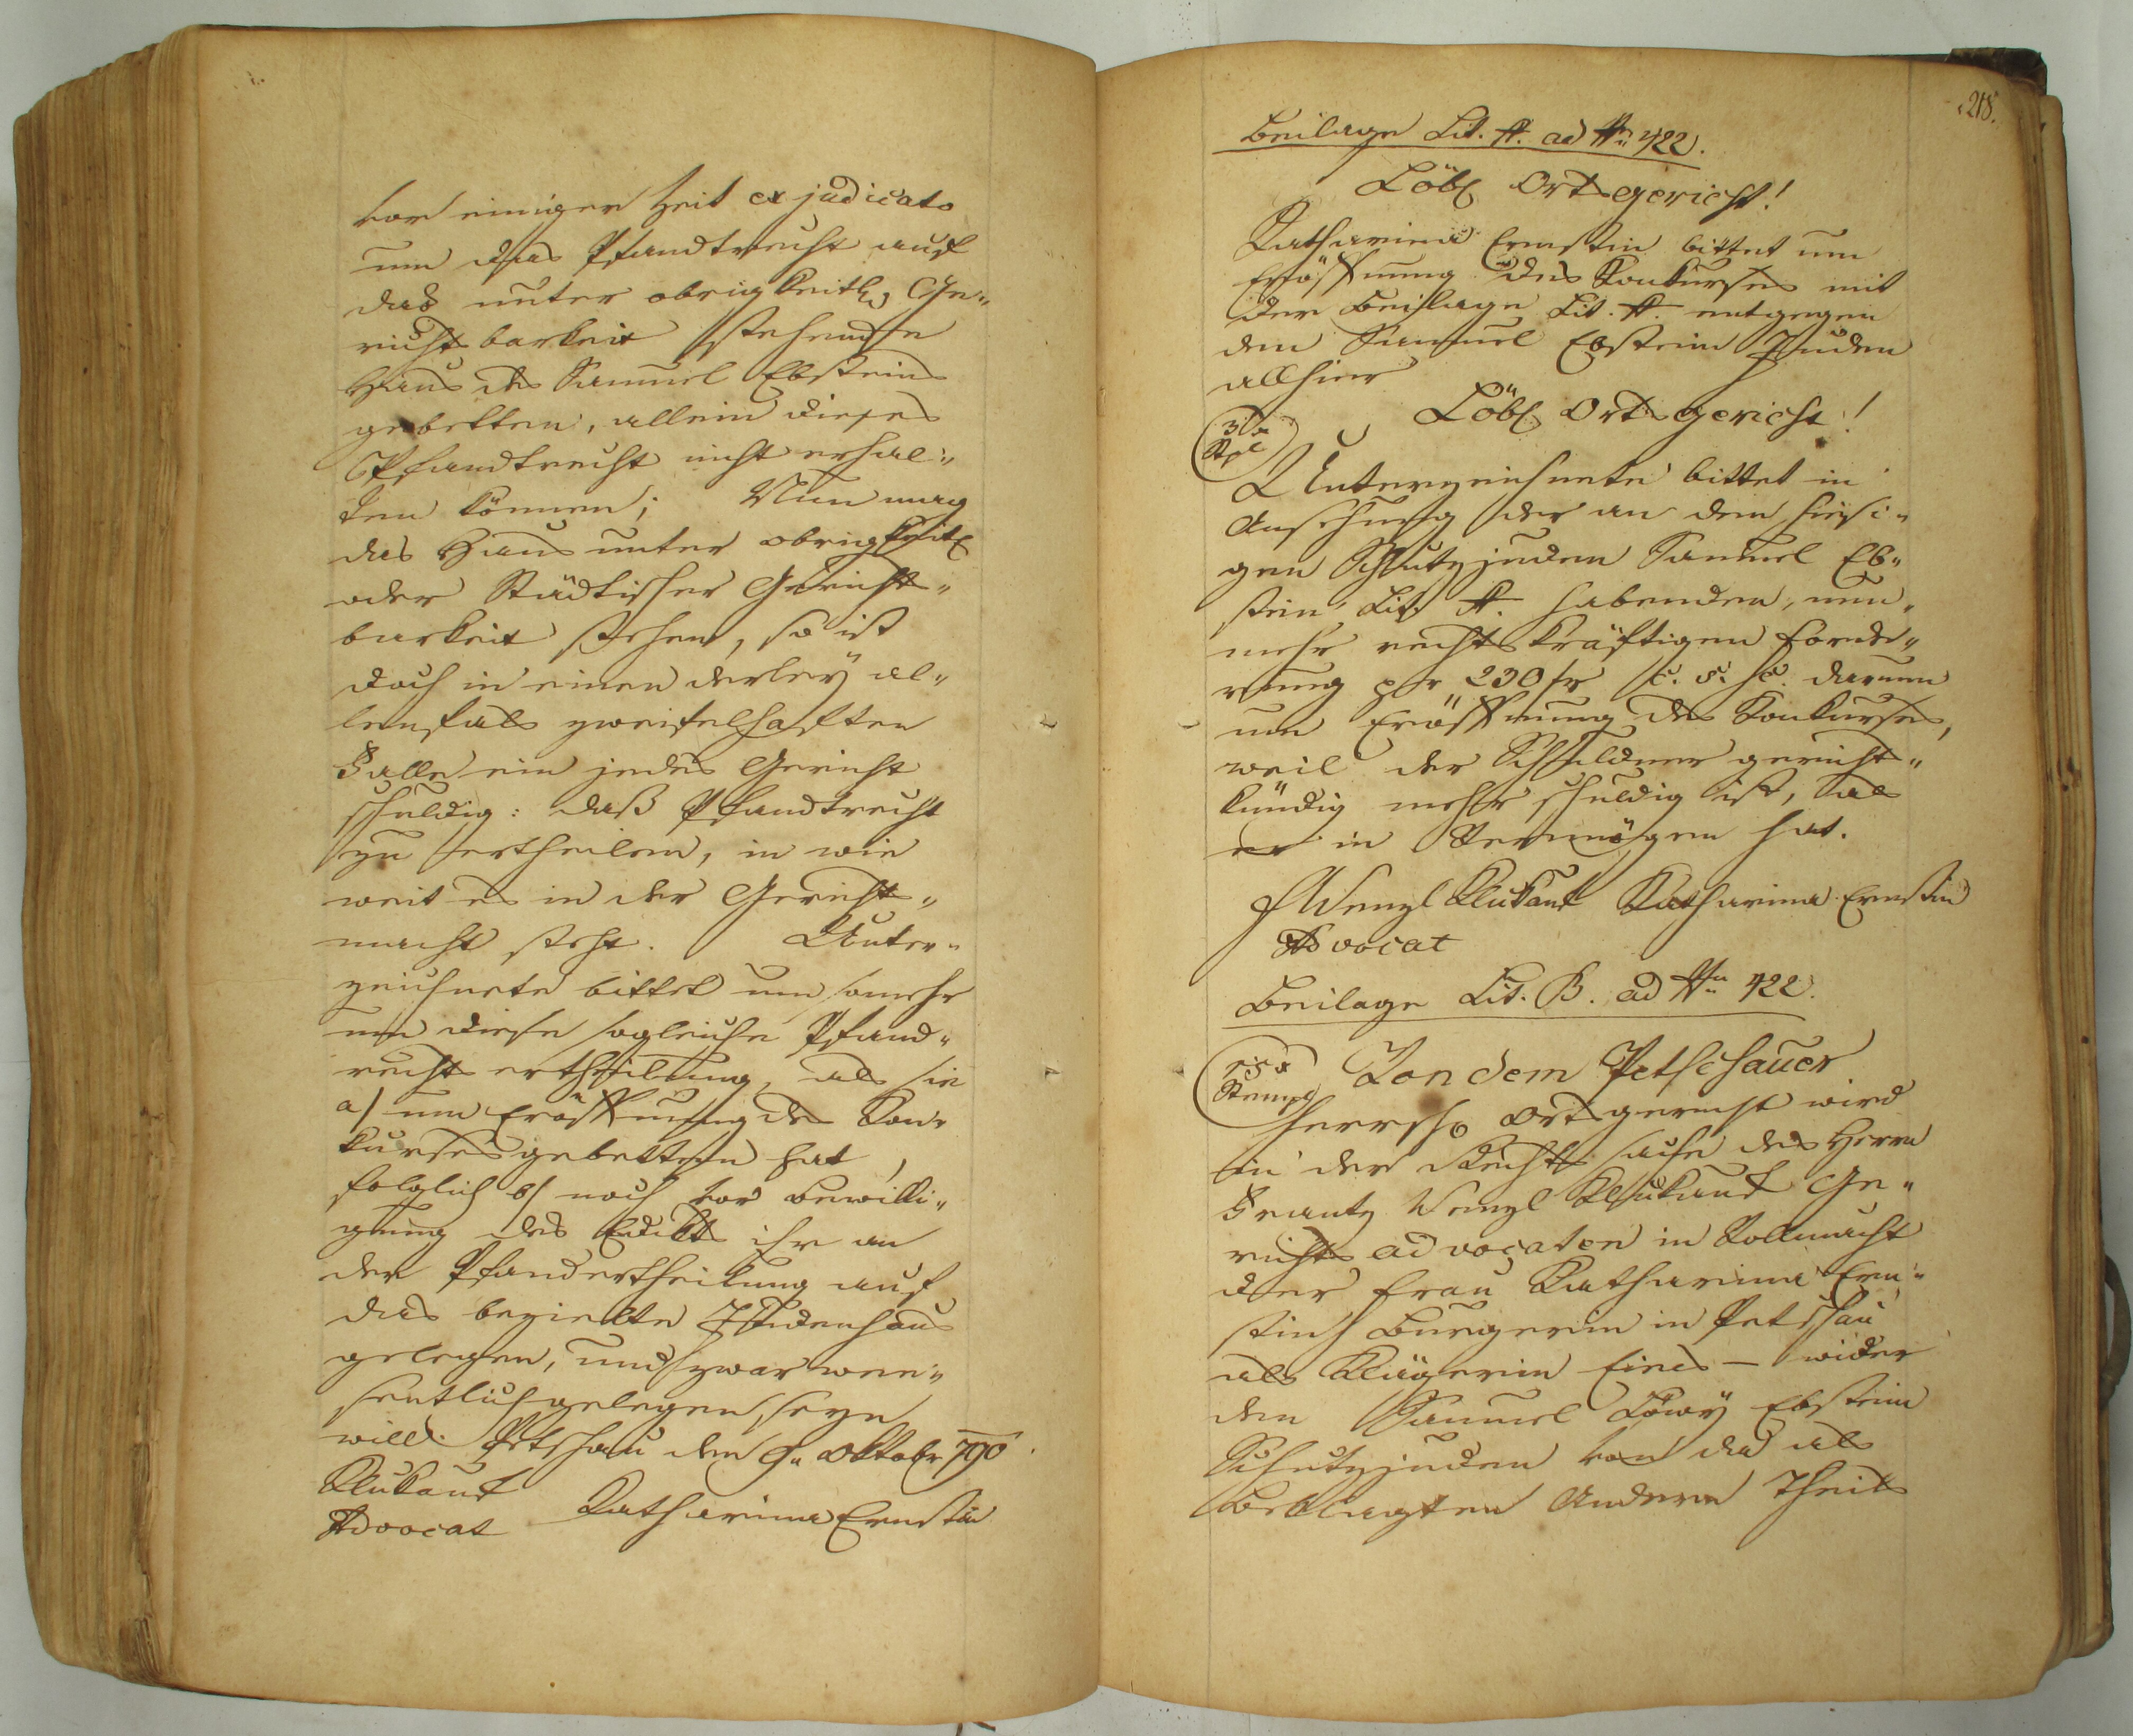 vor einiger Zeit ex judicato
um das Pfandtrecht auf
das unter obrigkeitl. Ge„
richtsbarkeit stehende
Haus des Samuel Ebsteins
gebetten, allein dieses
Pfandtrecht nicht erhal„
ten können; Nun mag
das Haus unter obrigkeitl
oder Städtischer Gerichts„
barkeit stehen, so ist
doch in einen derleÿ al„
lenfals zweifelhaften
Falle ein jedes Gericht
schuldig: daß Pfandtrecht
zu ertheilen, in wie
weit es in der Gerichts„
macht steht. Unter„
zeichnete bittet um somehr
um diese sogleiche Pfand„
rechts ertheilung, als sie
a) um Eröffnung des Kon„
kurses gebetten hat,
folglich b) noch vor Bewilli„
gung des Edikts ihr an
der Pfandertheilung auf
das bezielte Judenhaus
gelegen, und zwar wee„
sentlich gelegen seyn
will. Petschau den 9„ Oktobr 790.
Klukant
Advocat Katharina Ernstin
218.
Beilage Lit. A. ad Nr„ 422.
Löbl Ortsgericht!
Katharina Ernstin bittet um
Eröffnung des Konkurses mit
der Beilage Lit. A. entgegen
den Samuel Ebstein Juden
allhier
3 x
Stpl
Löbl Ortsgericht!
Unterzeichnete bittet in
Ansehung der an dem hiesi„
gen Schutzjuden Samuel Eb„
stein Lit. A. habenden, nun„
mehr rechtskräftigen Forde„
rung pr 230 fr c. s. c. darum
um Eröffnung des Konkurses,
weil der Schuldner gerichts„
kündig mehr schuldig ist, als
er in Vermögen hat.
Wenzl Klukant Katharina Ernstin
Advocat
Beilage Lit. B. ad Nr„ 422.
15 x
Stempl
Von dem Petschauer
herrsch. Ortsgericht wird
in der Rechtssache des Herrn
Frantz Wenzl Klukant Ge„
richts advocaten in Vollmacht
der Frau Katharina Ern„
stin Burgerin in Petschau
als Klägerin Eines – wider
den Samuel Löwÿ Ebstein
Schutzjuden von da als
Beklagten Andern Theils